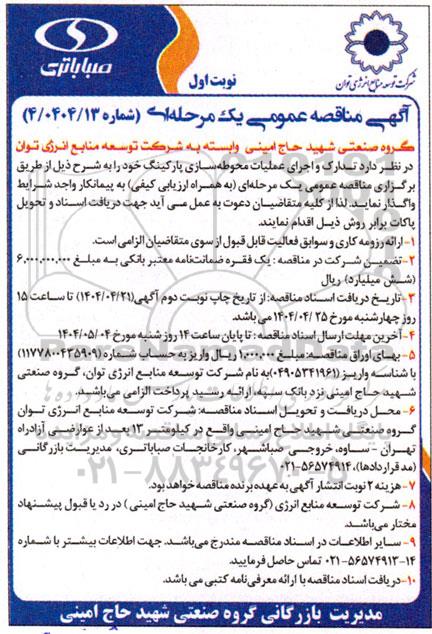 صباباتری
شرکت توسعه منابع انرژی توان
نوبت اول
آگهی مناقصه عمومی یک مرحله‌ای (شماره ۴/۰۴۰۴/۱۳)
گروه صنعتی شهید حاج امینی وابسته به شرکت توسعه منابع انرژی توان
در نظر دارد تدارک و اجرای عملیات محوطه‌سازی پارکینگ خود را به شرح ذیل از طریق
برگزاری مناقصه عمومی یک مرحله‌ای (به همراه ارزیابی کیفی) به پیمانکار واجد شرایط
واگذار نمایند. لذا از کلیه متقاضیان دعوت به عمل می آید جهت دریافت اسناد و تحویل
پاکات برابر روش ذیل اقدام نمایند.
۱- ارائه رزومه کاری و سوابق فعالیت قابل قبول از سوی متقاضیان الزامی است.
۲- تضمین شرکت در مناقصه : یک فقره ضمانت‌نامه معتبر بانکی به مبلغ ۶،۰۰۰،۰۰۰،۰۰۰
(شش میلیارد) ریال
۳- تاریخ دریافت اسناد مناقصه: از تاریخ چاپ نوبت دوم آگهی (۱۴۰۴/۰۴/۲۱) تا ساعت ۱۵
روز چهارشنبه مورخ ۱۴۰۴/۰۴/۲۵ می‌باشد.
۴- آخرین مهلت ارسال اسناد مناقصه : تا پایان ساعت ۱۴ روز شنبه مورخ ۱۴۰۴/۰۵/۰۴
۵- بهای اوراق مناقصه: مبلغ ۱،۰۰۰،۰۰۰ ریال واریز به حساب شماره (۱۱۷۷۸۰۰۴۳۵۹۰۹)
با شناسه واریز (۰۴۹۰۵۳۴۱۹۶۱) به نام شرکت توسعه منابع انرژی توان، گروه صنعتی
شهید حاج امینی نزد بانک سپه، ارائه رسید پرداخت الزامی می‌باشد.
۶- محل دریافت و تحویل اسناد مناقصه: شرکت توسعه منابع انرژی توان
گروه صنعتی شهید حاج امینی واقع در کیلومتر ۱۳ بعد از عوارضی آزادراه
تهران - ساوه، خروجی صباشهر، کارخانجات صباباتری، مدیریت بازرگانی
(مدقراردادها)، ۵۶۵۷۴۹۱۴-۰۲۱
۷- هزینه ۲ نوبت انتشار آگهی به عهده برنده مناقصه خواهد بود.
۸- شرکت توسعه منابع انرژی (گروه صنعتی شهید حاج امینی ) در رد یا قبول پیشنهاد
مختار می‌باشد.
۹- سایر اطلاعات در اسناد مناقصه مندرج می‌باشد. جهت اطلاعات بیشتر با شماره
۱۴-۵۶۵۷۴۹۱۳-۰۲۱ تماس حاصل فرمایید.
۱۰- دریافت اسناد مناقصه با ارائه معرفی‌نامه کتبی می باشد.
مدیریت بازرگانی گروه صنعتی شهید حاج امینی
۰۲۱-۸۸۳۴۹۶۷۰-۵